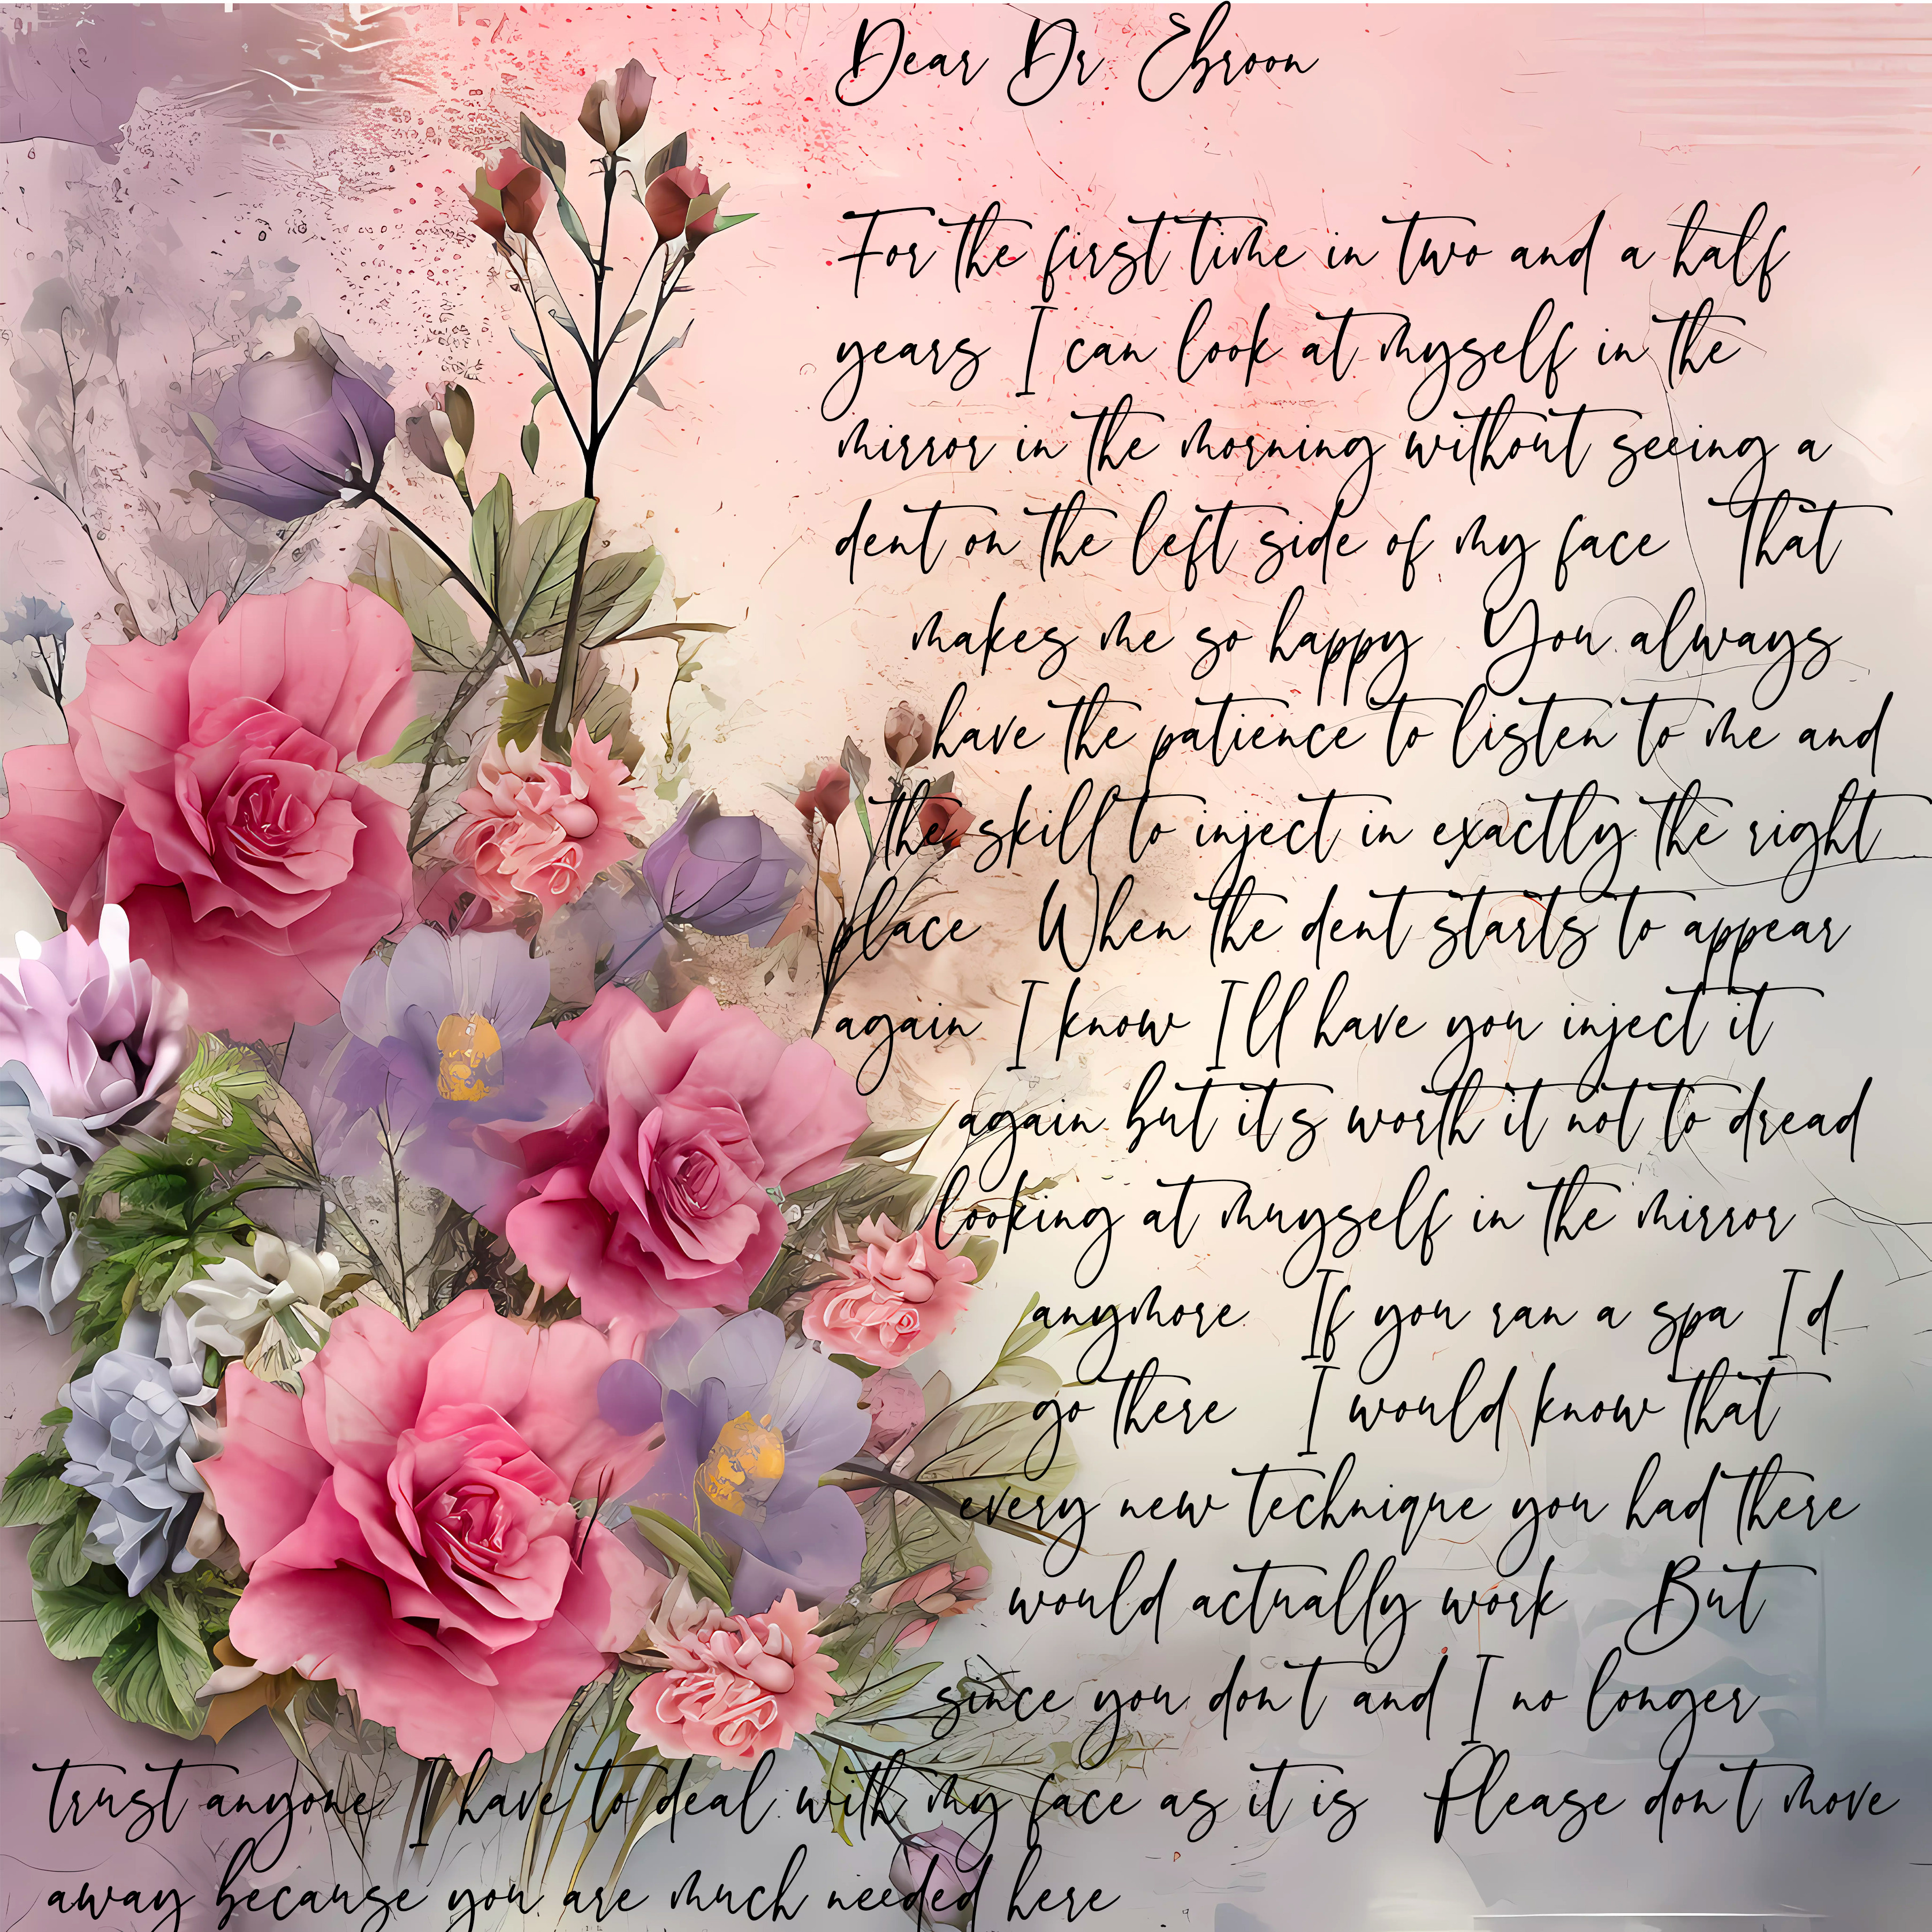 Dear Dr Ebroon
For the first time in two and a half
years I can look at myself in the
mirror in the morning without seeing a
dent on the left side of my face That
makes me so happy You always
have the patience to listen to me and
the skill to inject in exactly the right
place When the dent starts to appear
again I know Ill have you inject it
again but its worth it not to dread
looking at muyself in the mirror
anymore If you ran a spa Id
go there I would know that
every new technique you had there
would actually work But
since you dont and I no longer
trust anyone I have to deal with my face as it is Please dont move
away because you are much needed here